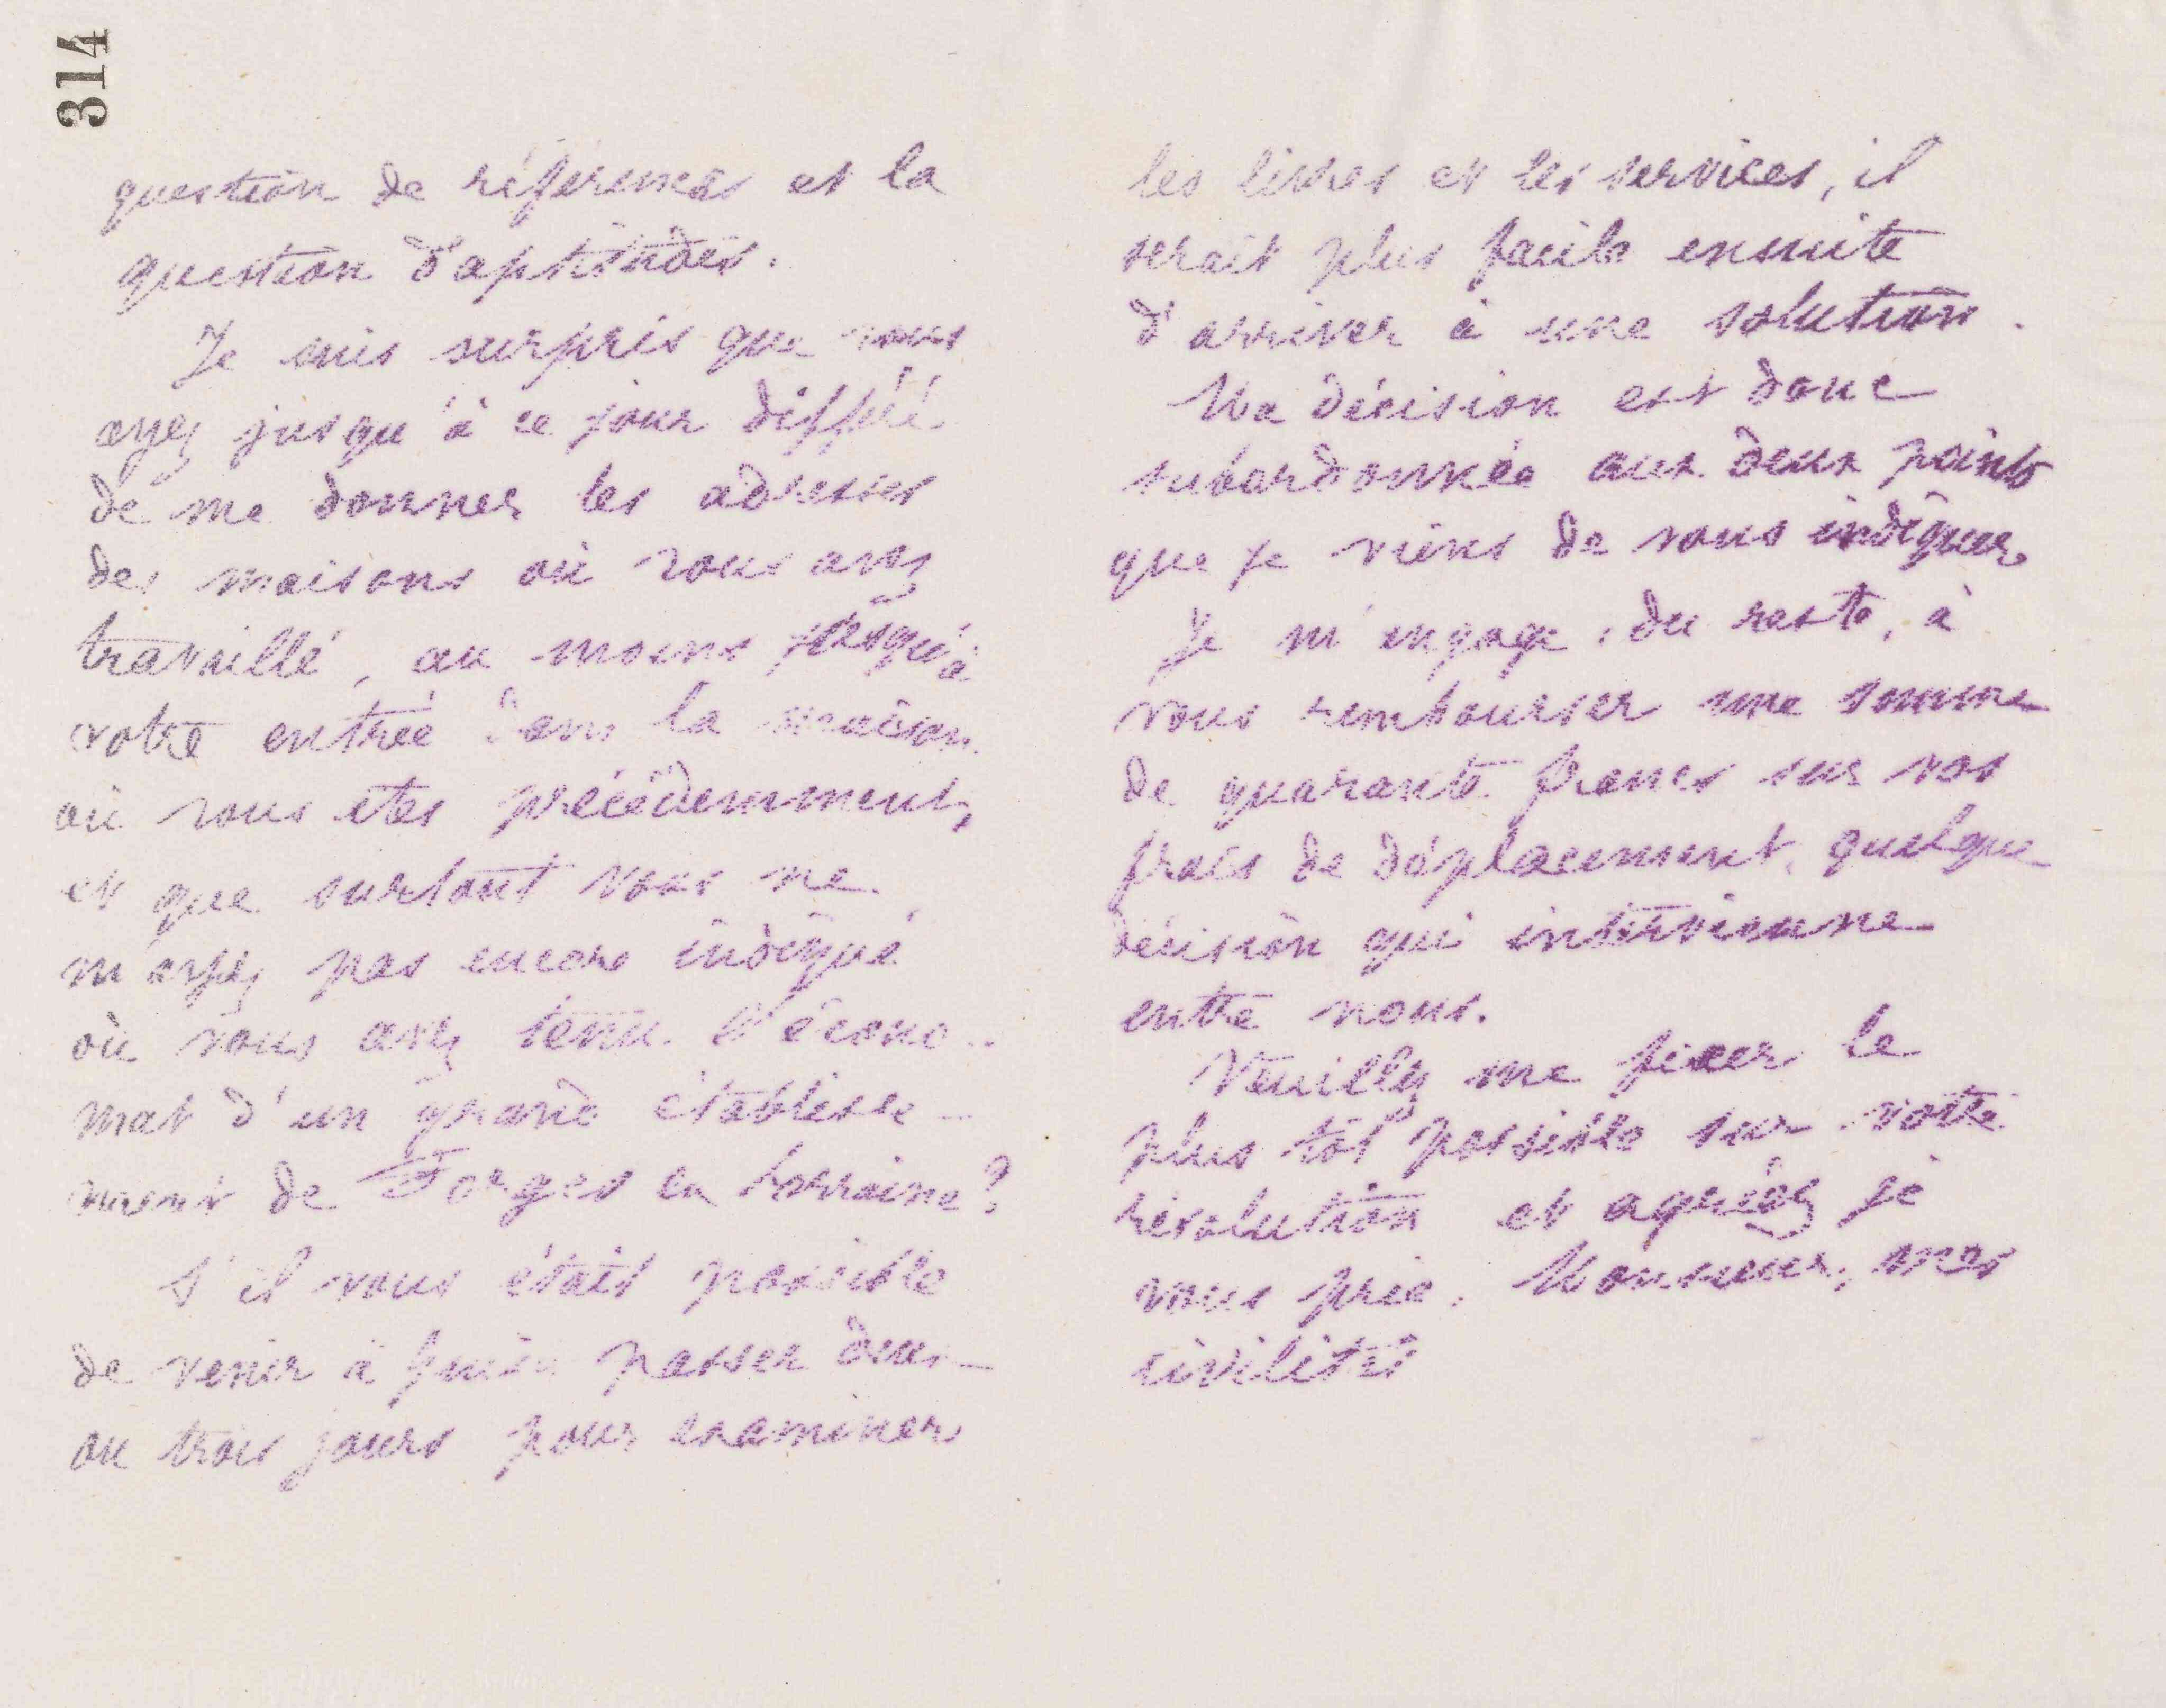 314
question de références et la
question d'aptitudes.
Je suis surpris que vous
ayez jusqu'à ce jour différé
de me donner les adresses
des maisons où vous avez
travaillé, au moins jusqu'à
votre entrée dans la maison
où vous étes précédemment,
et que surtout vous ne
m'ayez pas encore indiqué
où vous avez tenu l'écono-
mat d'un grand établisse-
ment de Forges en Lorraine ?
S'il vous était possible
de venir à Guise passer deux
ou trois jours pour examiner
les livres et les services, il
serait plus facile ensuite
d'arriver à une solution.
Ma décision est donc
subordonnée aux deux points
que je viens de vous indiquer
Je m'engage, du reste, à
vous rembourser une somme
de quarante francs sur vos
frais de déplacement, quelque
décision qui intervienne
entre nous.
Veuillez me fixer le
plus tôt possible sur votre
résolution et agréez je
vous prie, Monsieur, mes
civilités